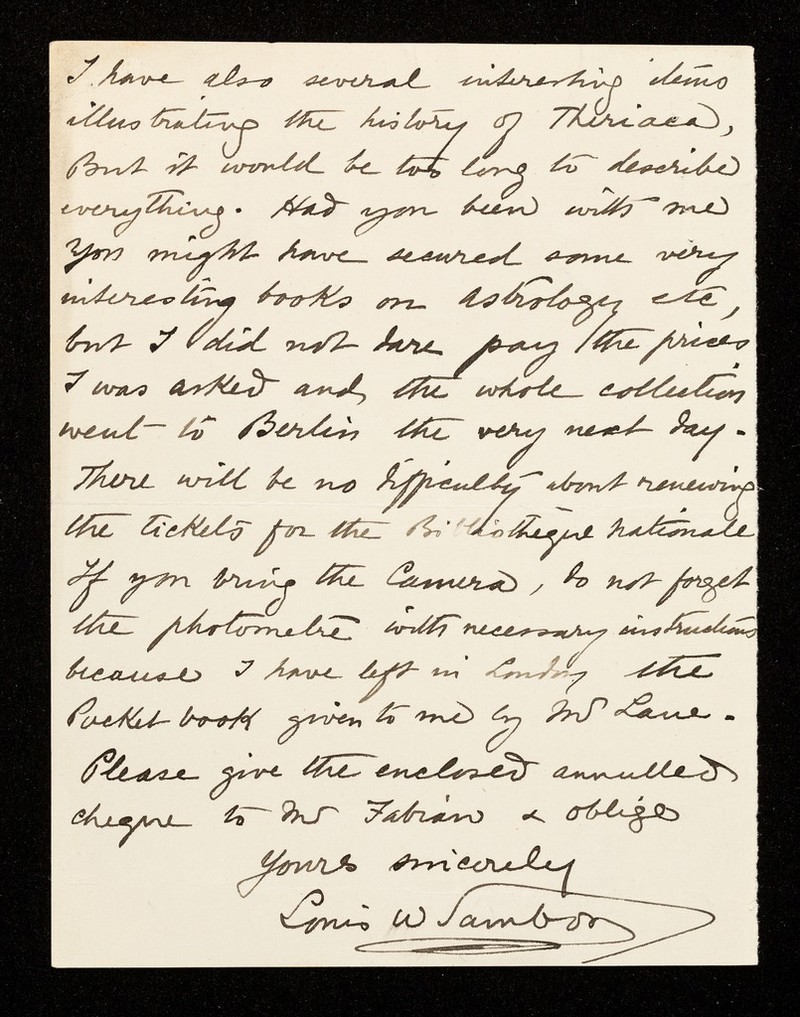 I have also several interesting items
illustrating the history of Theriaca,
But it would be too long to describe
everything. Had you been with me
You might have secured some very
interesting books on astrology etc,
but I did not dare pay the prices
I was asked and, the whole collection
went to Berlin the very next day.
There will be no difficulty about renewing
the tickets for the Bibliothèque Nationale
If you bring the Camera, do not forget
the photometre with necessary instructions
because I have left in London the
Pocket book given to me by Mr Lane.
Please give the enclosed annulled
cheque to Mr Fabian & oblige
Yours sincerely
Louis W Sambon